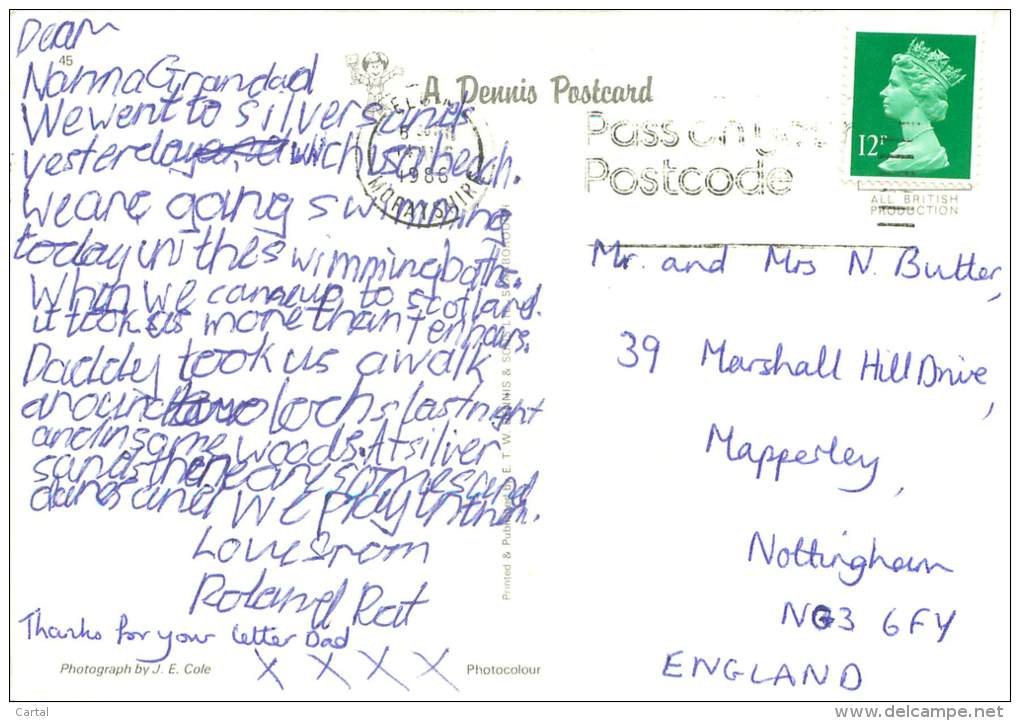 Dear
45
Nanna Grandad
We went to silver sands
yesterday which is a beach.
We are going swimming
today in the swimming baths.
When we came up to scotland.
it took us more than ten hours.
Daddy took us a walk
around two lochs last night
and in some woods. At silver
sands there are some sand
dunes and we play in them.
Love from
Roland Rat
Thanks for your letter Dad
X X X X
Photograph by J. E. Cole
Photocolour
A Dennis Postcard
1986
MORAYSHIRE
Pass on your
Postcode
12P
ALL BRITISH
PRODUCTION
Printed & Published by E. T. W. DENNIS & SONS LTD. SCARBOROUGH
Mr. and Mrs N. Butter,
39 Marshall Hill Drive,
Mapperley,
Nottingham
NG3 6FY
ENGLAND
Cartal
delcampe.net